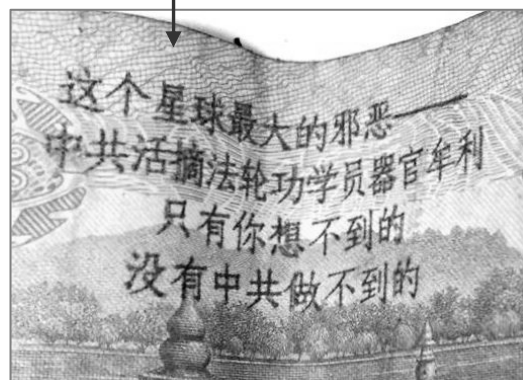 这个星球最大的邪恶——
中共活摘法轮功学员器官牟利
只有你想不到的
没有中共做不到的